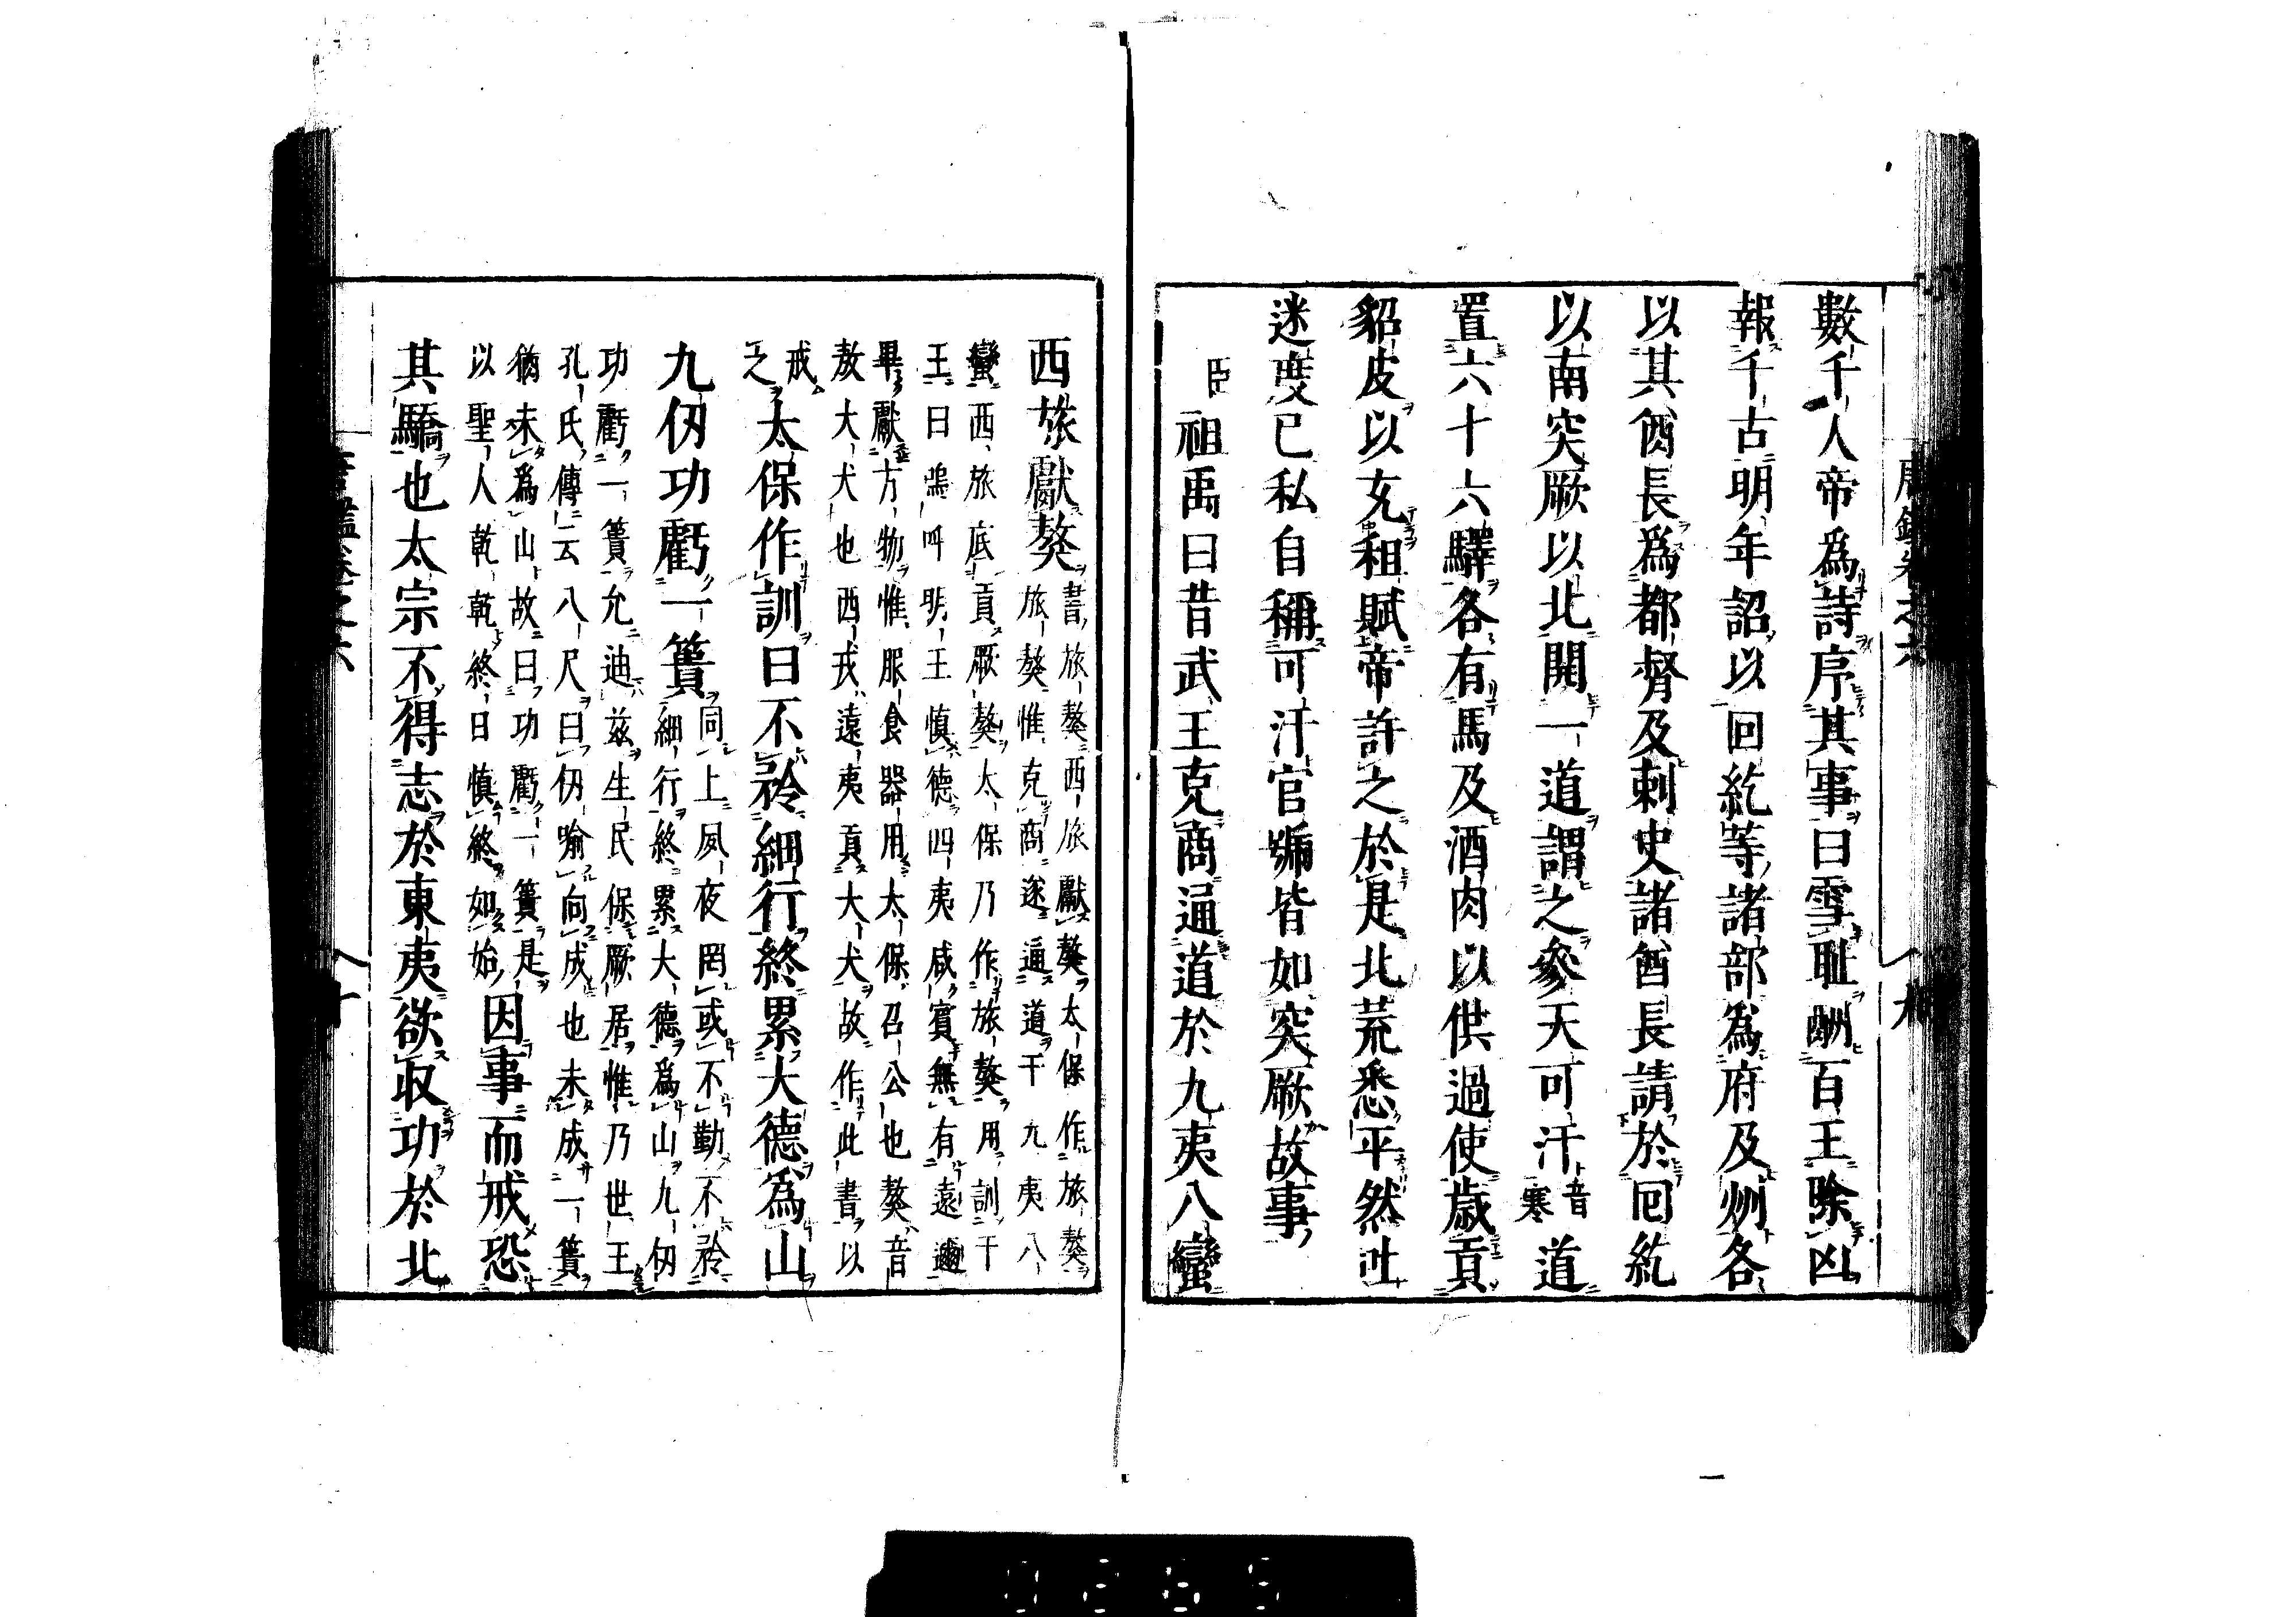 數千人帝爲詩序其事曰雪耻酬百王除凶
報千古明年詔以回紇等諸部爲府及州各
以其酋長爲都督及刺史諸酋長請於回紇
以南突厥以北開一道謂之參天可汗音寒道
置六十六驛各有馬及酒肉以供過使歲貢
貂皮以充租賦帝許之於是北荒悉平然吐
迷度已私自稱可汗官號皆如突厥故事
臣祖禹曰昔武王克商通道於九夷八蠻
西旅獻獒書旅獒西旅獻獒太保作旅獒
旅獒惟克商遂通道于九夷八
蠻西旅底貢厥獒太保乃作旅獒用訓于
王曰嗚呼明王慎德四夷咸賓無有遠邇
畢獻方物惟服食器用太保召公也獒音
敖大犬也西戎遠夷貢大犬故作此書以
戒之太保作訓曰不矜細行終累大德爲山
九仞功虧一簣同上夙夜罔或不勤不矜
細行終累大德爲山九仞
功虧一簣允迪茲生民保厥居惟乃世王
孔氏傳云八尺曰仞喻向成也未成一簣
猶未爲山故曰功虧一簣是
以聖人乾乾終日慎終如始因事而戒恐
其驕也太宗不得志於東夷欲収功於北